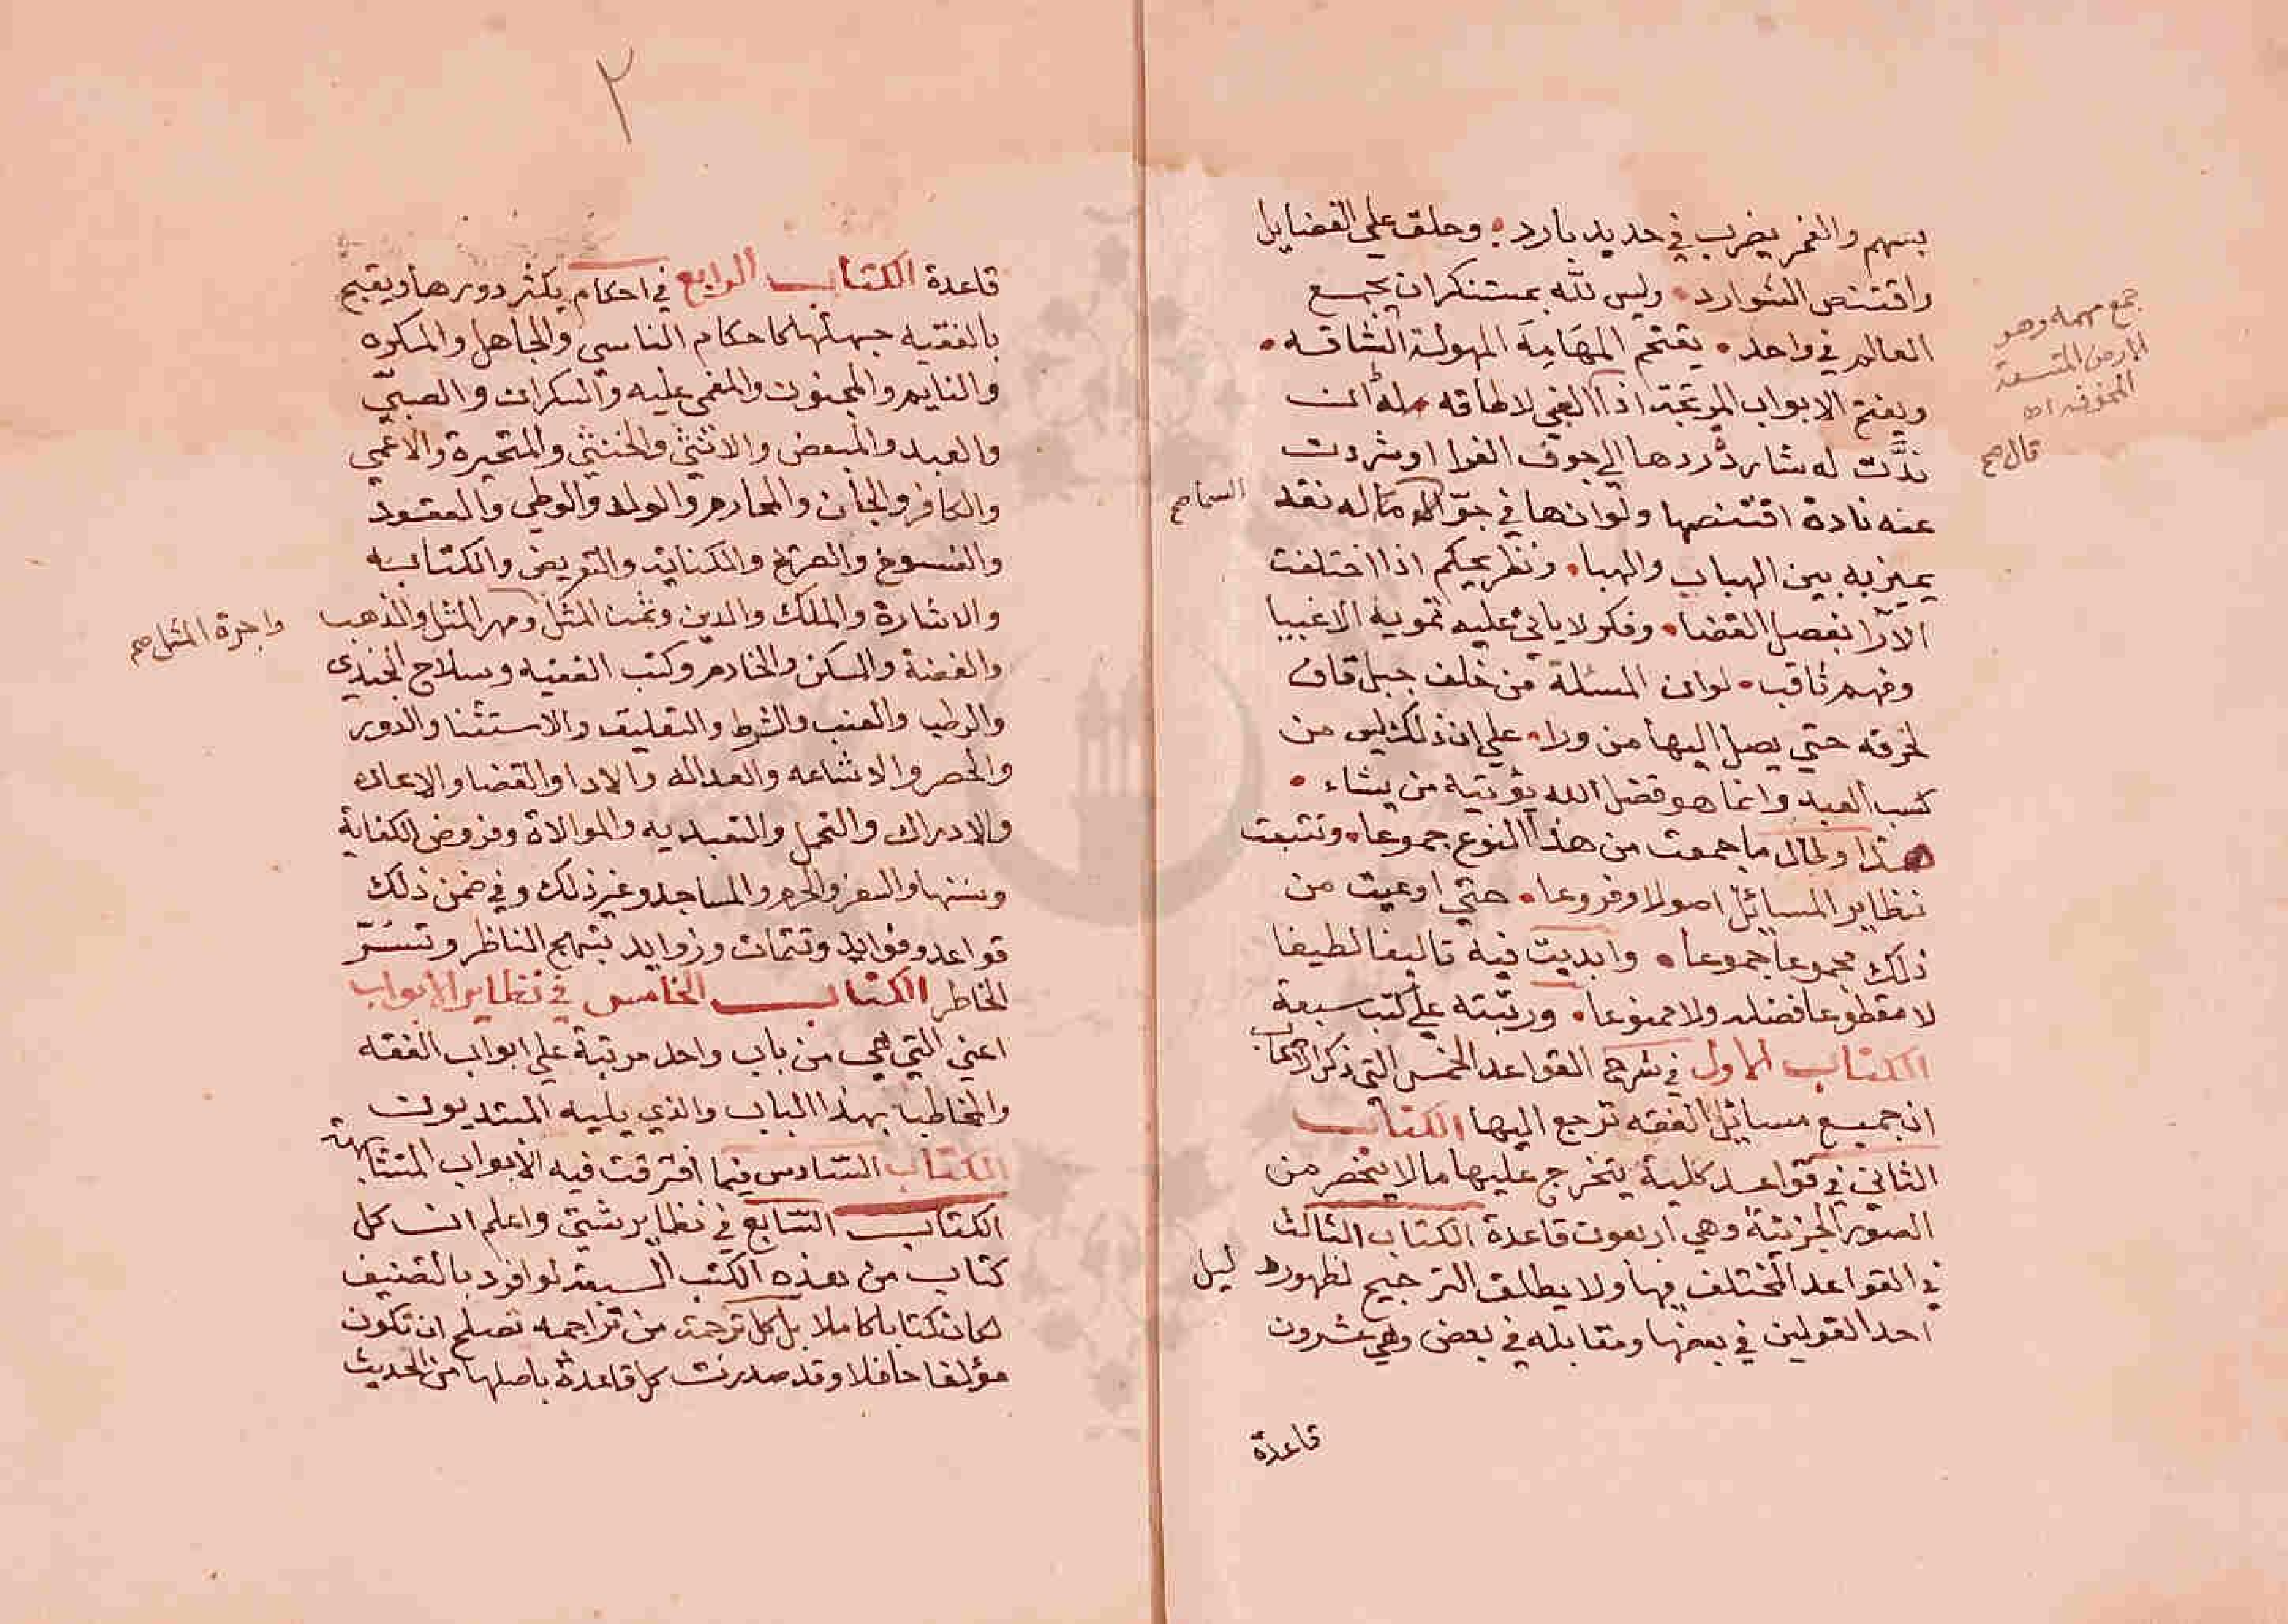 بسهم والغمر يضرب في حديد بارد وحلق علي الفضايل
واقتنص الشوارد وليس لله بمستنكر ان يجمع
العالم في واحد يقتحم المهَامِهَ المهولة الشاقه
ويفتح الابواب المرتجة اذا الغبي لا طاقه له ان
ندَّت له شاردة ردها الي جوف الفرا او شردت
عنه نادة اقتنصها ولو انها في جوّ له نقد
يميز به بين الهباب والهبا ونظر يحكم اذا اختلفت
الآرا بفصل القضا وفكر لا ياتي عليه تمويه الاغبيا
وفهم ثاقب لو ان المسئلة من خلف جبل قاف
لخرقه حتي يصل اليها من ورا علي ان ذلك ليس من
كسب العبد وانما هو فضل الله يؤتيه من يشاء
هذا وطال ما جمعت من هذا النوع جموعا وتتبعت
نظاير المسائل اصولا وفروعا حتي اوعيت من
ذلك مجموعا جموعا وابديت فيه تاليفا لطيفا
لا مقطوعا فضله ولا ممنوعا ورتبته علي كتب سبعة
الكتاب الاول في شرح القواعد الخمس التي ذكر الاصحاب
ان جميع مسائل الفقه ترجع اليها الكتاب
الثاني في قواعد كلية يتخرج عليها ما لا ينحصر من
الصور الجزئية وهي اربعون قاعدة الكتاب الثالث
في القواعد المختلف فيها ولا يطلق الترجيح لظهور دليل
احد القولين في بعضها ومقابله في بعض وهي عشرون
قاعدة
جمع مهمه وهو
الارض المتسعة
المخوفه اه
قال صح
السما صح
٢
قاعدة الكتاب الرابع في احكام يكثر دورها ويقبح
بالفقيه جهلها كاحكام الناسي والجاهل والمكره
والنايم والمجنون والمغمي عليه والسكران والصبيّ
والعبد والمبعض والانثي والخنثي والمتحيرة والاعمي
والكافر والجان والمحارم والولد والوطي والعقود
والفسوخ والصريح والكناية والتعريض والكتابه
والاشارة والملك والدين وثمن المثل ومهر المثل والذهب
واجرة المثل صح
والفضة والمسكن والخادم وكتب الفقيه وسلاح الجندي
والرطب والعنب والشرط والتعليق والاستثنا والدور
والحصر والاشاعه والعداله والادا والقضا والاعاده
والادراك والتحمل والتعبديه والموالاة وفروض الكفاية
وسننها والسفر والحرم والمساجد وغير ذلك وفي ضمن ذلك
قواعد وفوايد وتتمات وزوايد يبتهج الناظر وتسُرّ
الخاطر الكتاب الخامس في نظاير الابواب
اعني التي هي من باب واحد مرتبة علي ابواب الفقه
والمخاطب بهذا الباب والذي يليه المبتديون
الكتاب السّادس فيما افترقت فيه الابواب المتشابهة
الكتاب السّابع في نظاير شتي واعلم ان كل
كتاب من هذه الكتب السبعة لو افرد بالتصنيف
لكان كتابا كاملا بل كل ترجمة من تراجمه تصلح ان تكون
مؤلفا حافلا وقد صدرت كل قاعدة باصلها من الحديث